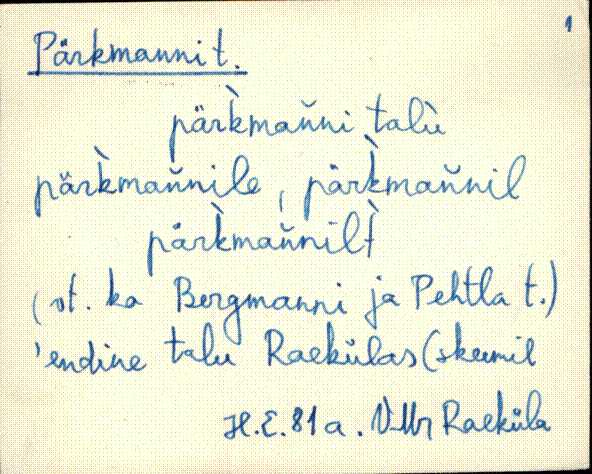 1
Pärkmanni t.
pärk̀maňni talù
pärk̀maňnile, pärk̀maňnil
pärk̀maňnilt̀
(vt. ka Bergmanni ja Pehtla t.)
'endine talu Raekülas (skeemil
H.E. 81 a. VMr Raeküla